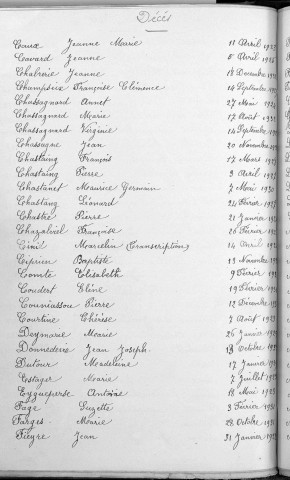 Décès
Caux Jeanne Marie 11 Avril
Cavard Jeanne 5 Avril
Chabrerie Jeanne 18 Décembre
Champseix Françoise Clémence 14 Septembre
Chassagnard Annet 27 Mai
Chassagnard Marie 17 Août
Chassagnard Virginie 14 Septembre
Chassagne Jean 20 Novembre
Chastaing François 17 Mars
Chastaing Pierre 3 Avril
Chastanet Maurice Germain 7 Mai
Chastang Léonard 24 Février
Chastre Pierre 21 Janvier
Chazalviel Françoise 26 Février
Marcelin (Transcription) 14 Avril
Cipière Baptiste 13 Novembre
Comte Elisabeth 9 Février
Coudert Eline 19 Février
Couniassou Pierre 12 Décembre
Courtine Thérèse 7 Août
Deymarie Marie 26 Janvier
Donnedevie Jean Joseph Octobre
Dufour Madeleine 17 Janvier
Estager Marie 7 Juillet
Eygueperse Antoine 18 Mai
Fage Suzette 3 Février
Farges Marie 28 Octobre
Fieyre Jean 31 Janvier